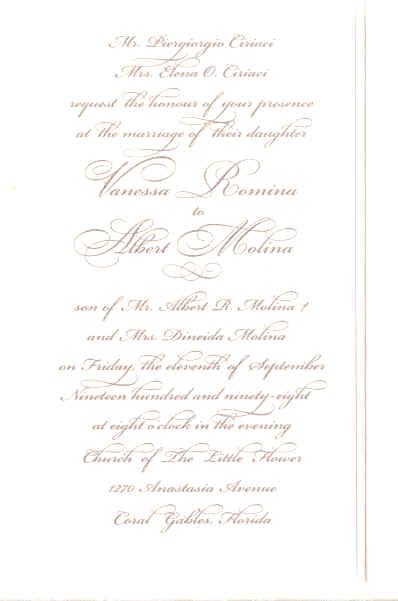 Mr. Piergiorgio Ciriaci
Mrs. Elena O. Ciriaci
request the honour of your presence
at the marriage of their daughter
Vanessa Romina
to
Albert Molina
son of Mr. Albert R. Molina †
and Mrs. Dineida Molina
on Friday, the eleventh of September
Nineteen hundred and ninety-eight
at eight o'clock in the evening
Church of The Little Flower
1270 Anastasia Avenue
Coral Gables, Florida